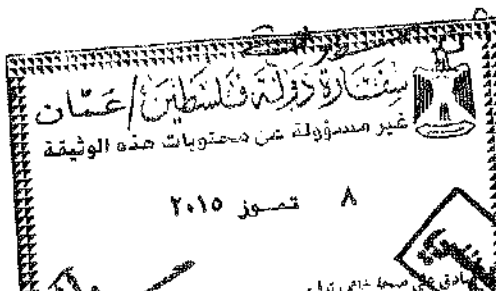 سفارة دولة فلسطين / عمّان
غير مسؤولة عن محتويات هذه الوثيقة
٨ تموز ٢٠١٥
صحة خاتم